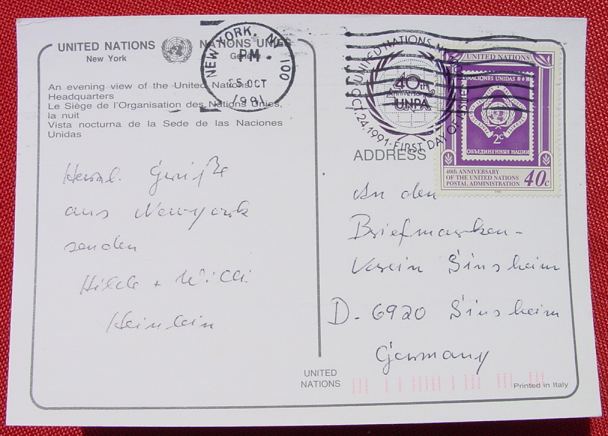 UNITED NATIONS NATIONS UNIES
New York
An evening view of the United Nations
Headquarters
Le Siège de l'Organisation des Nations Unies,
la nuit
Vista nocturna de la Sede de las Naciones
Unidas
NEW YORK, NY 100
PM
OCT
1991
UNITED NATIONS
40th
UNPA
OCT. 24, 1991-FIRST DAY OF
UNITED NATIONS
NACIONES UNIDAS
2c
ОБЪЕДИНЕННЫЕ НАЦИИ
40th ANNIVERSARY
OF THE UNITED NATIONS
POSTAL ADMINISTRATION 40c
ADDRESS
Herzl. Grüße
aus Newyork
senden
Hilde + Willi
Heinlein
An den
Briefmarken-
Verein Sinsheim
D-6920 Sinsheim
Germany
UNITED
NATIONS
Printed in Italy